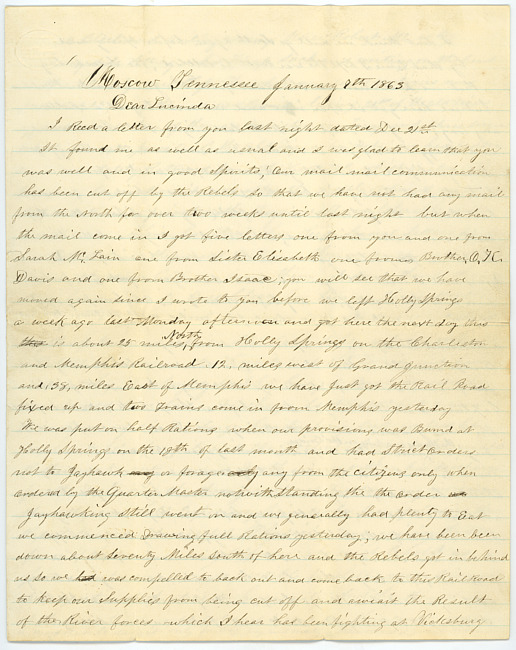 Moscow Tennessee January 8th 1863
Dear Lucinda
I Recd a letter from you last night dated Dec 21st
It found me as well as usual and I was glad to learn that you
was well and in good Spirits, Our mail mail communication
has been cut off by the Rebels so that we have not had any mail
from the North for over two weeks until last night but when
the mail come in I got five letters one from you and one from
Sarah Mc Lain one from Sister Elizabeth one from Brother O, K.
Davis and one from Brother Isaac; you will see that we have
moved again since I wrote to you before we left Holly Springs
a week ago last Monday afternoon and got here the next day this
is about 25 miles North from Holly Springs on the Charleston
and Memphis Railroad 12, miles west of Grand junction
and 38, miles East of Memphis we have just got the Rail Road
fixed up and two Trains come in from Memphis yesterday
We was put on half Rations when our provisions was Burnd at
Holly Springs on the 19th of last month and had Strict orders
not to Jayhawk or forage any from the Citizens only when
ordered by the Quarter Master notwithstanding the the order
Jayhawking Still went on and we generally had plenty to Eat
we commenced Drawing full Rations yesterday; we have been been
down about Seventy Miles South of here and the Rebels got in behind
us so we was compelled to back out and come back to the Rail Road
to keep our Supplies from being cut off and await the Result
of the River forces which I hear has been fighting at Vicksburg